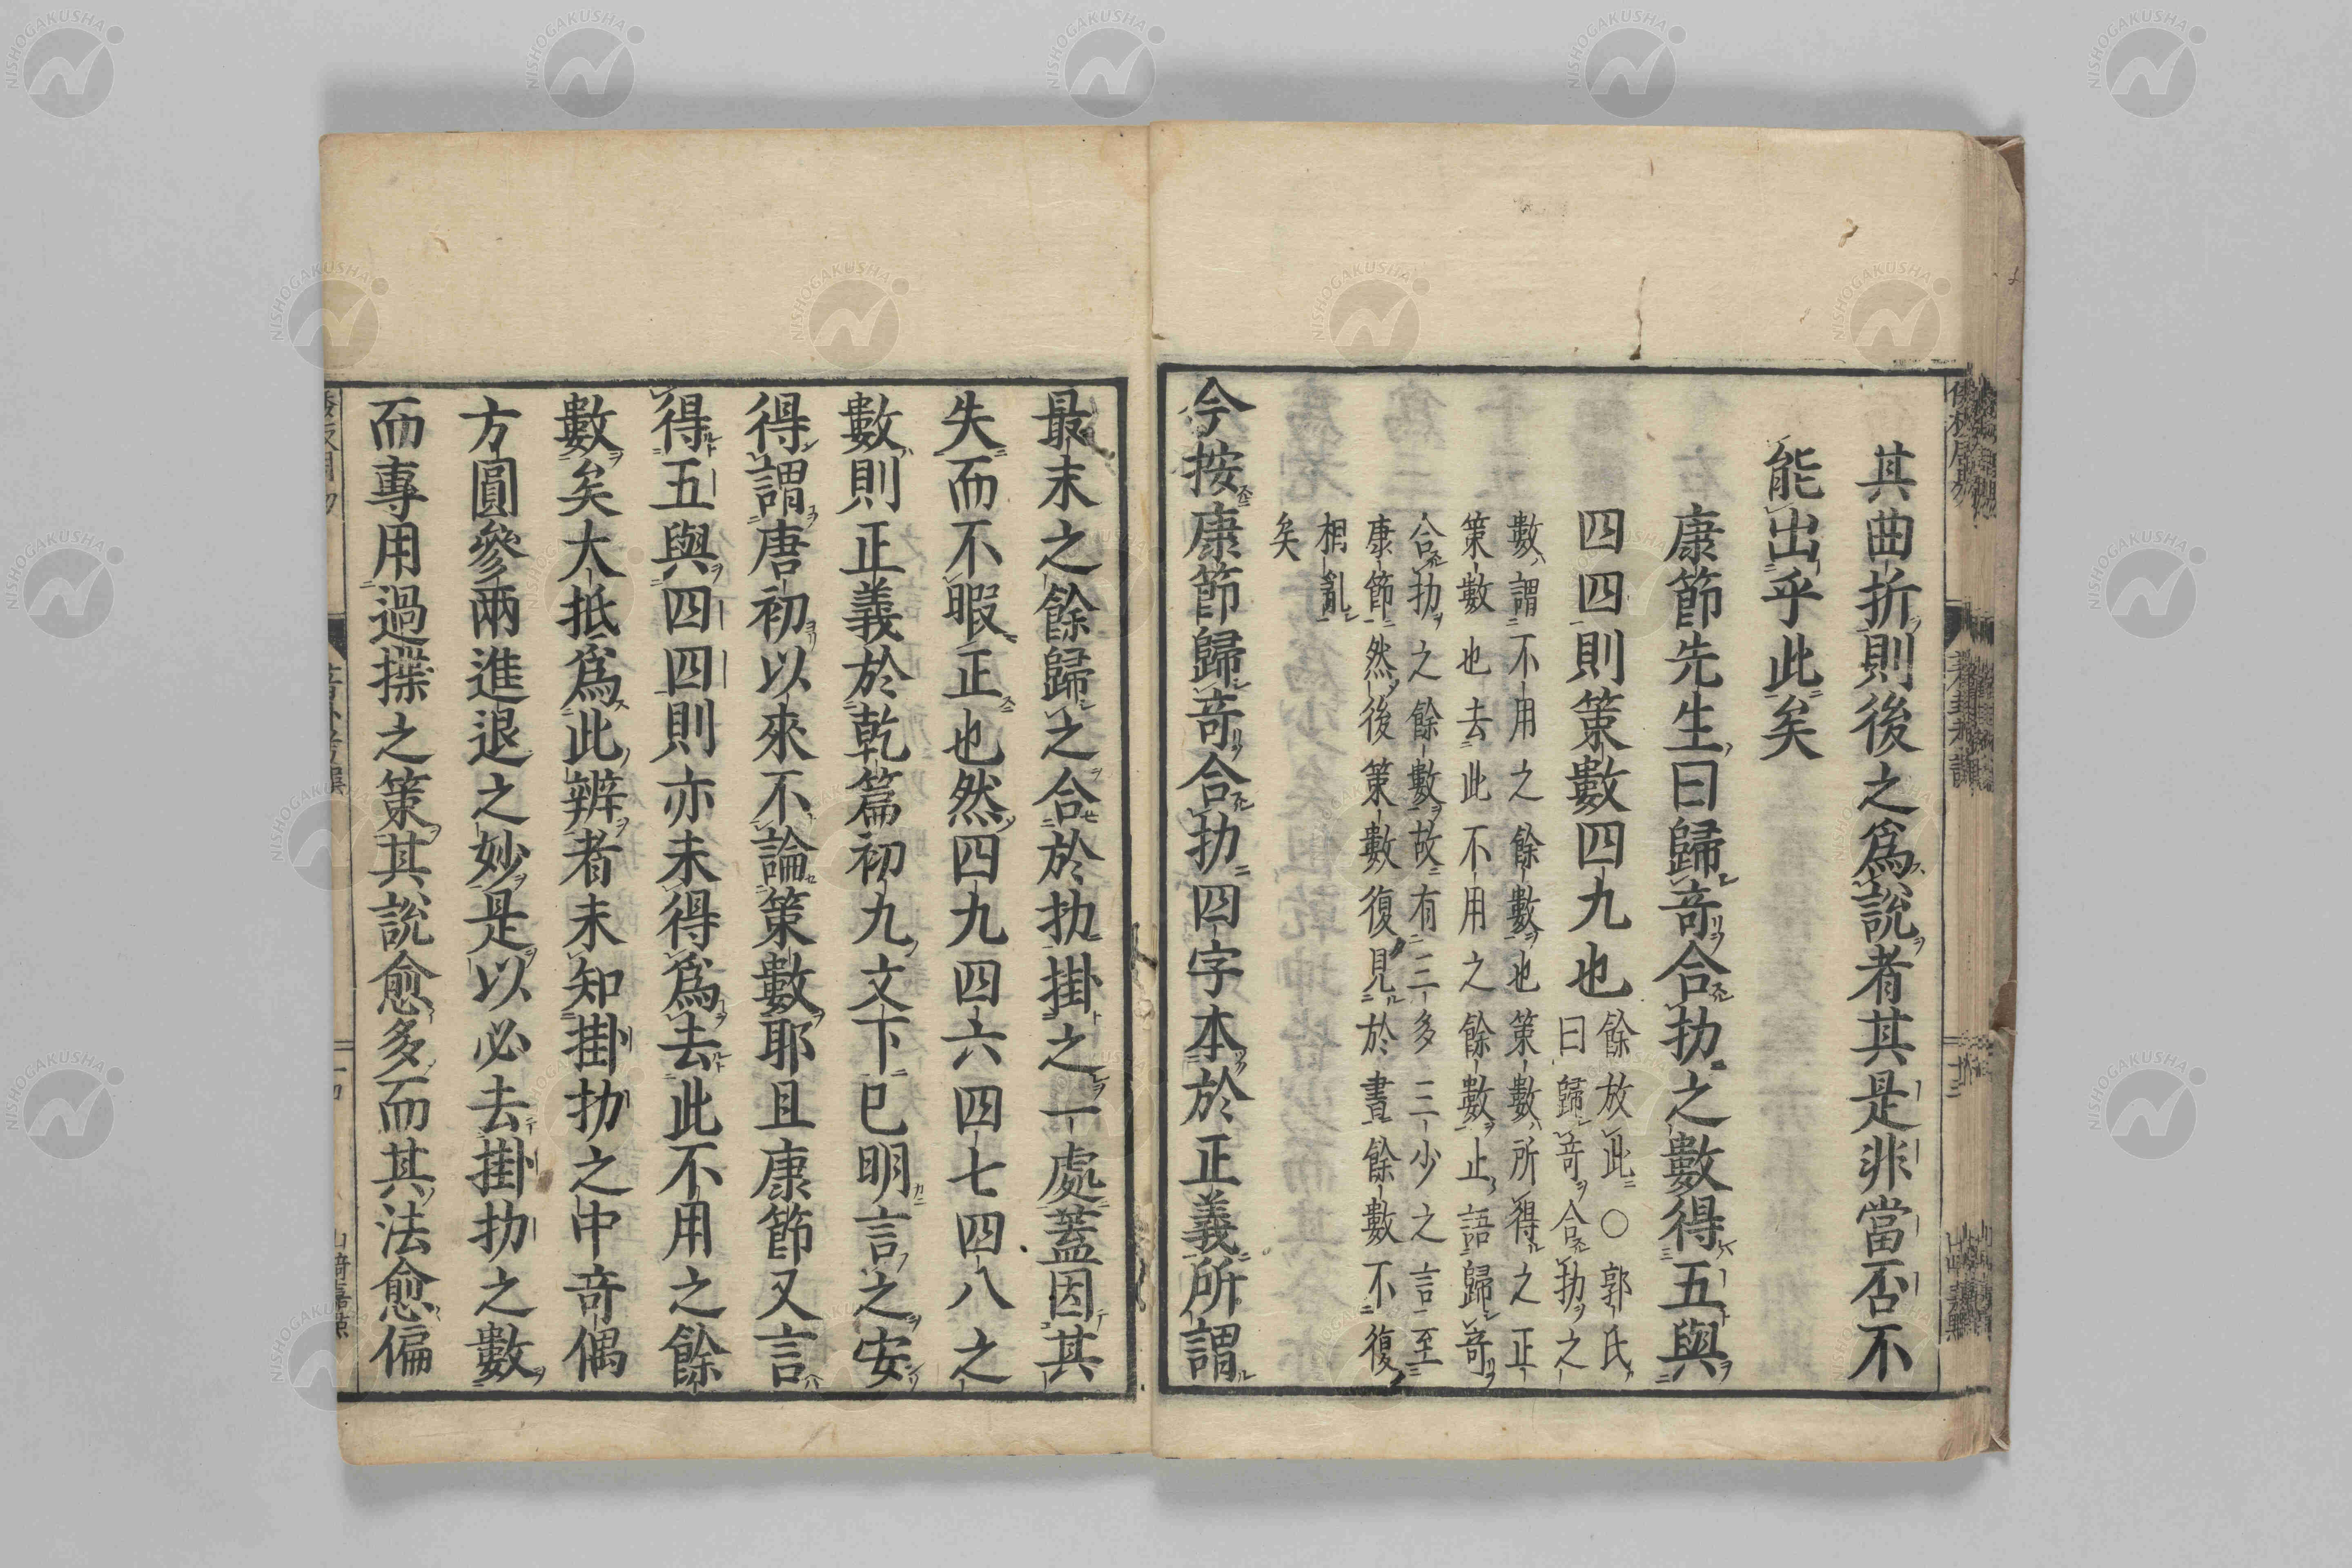 其曲折則後之爲說者其是非當否不
能出乎此矣
康節先生曰歸竒合扐之數得五與
四四則策數四九也
餘放此○郭氏
曰歸竒合扐之
數謂不用之餘數也策數所得之正
策數也去此不用之餘數止語歸竒
合扐之餘數故有三多三少之言至
康節然後策數復見於書餘數不復
相亂
矣
今按康節歸竒合扐四字本於正義所謂
最末之餘歸之合於扐掛之一處蓋因其
失而不暇正也然四九四六四七四八之
數則正義於乾篇初九文下已明言之安
得謂唐初以來不論策數耶且康節又言
得五與四四則亦未得爲去此不用之餘
數矣大抵爲此辨者未知掛扐之中竒偶
方圓參兩進退之妙是以必去掛扐之數
而專用過揲之策其說愈多而其法愈偏
山﨑嘉點
NISHOGAKUSHA